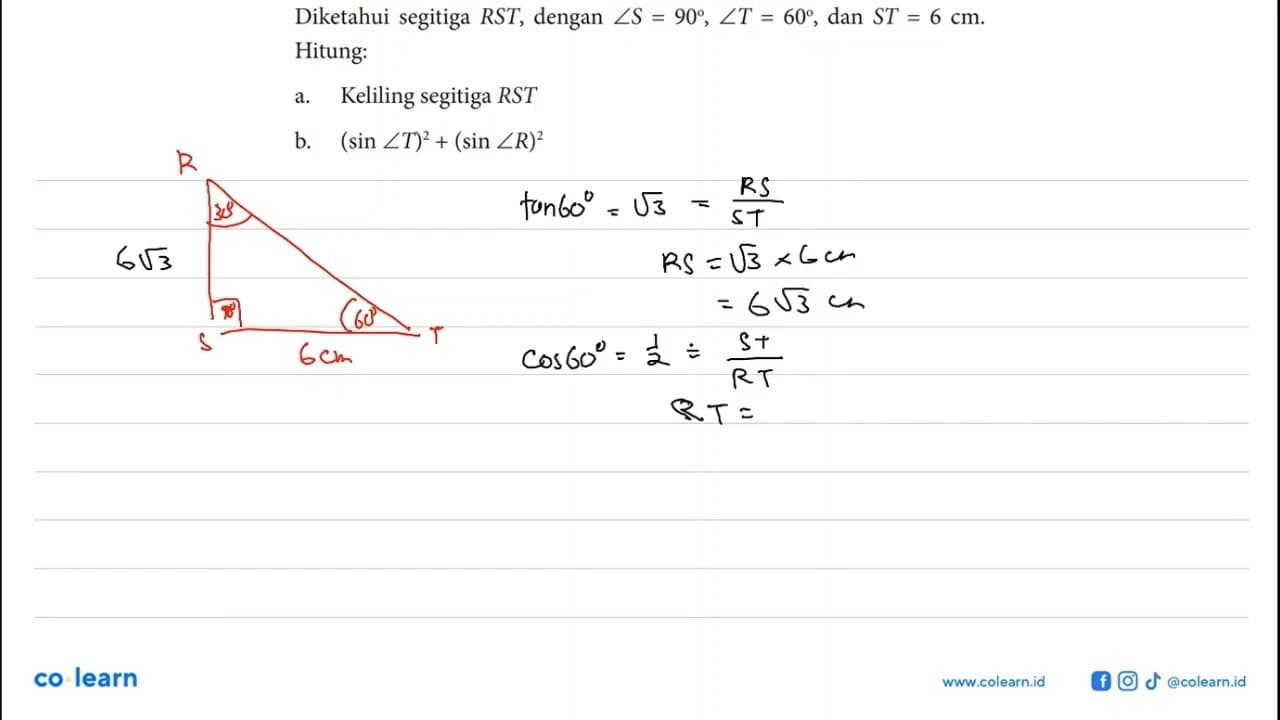 Diketahui segitiga RST, dengan ∠S = 90°, ∠T = 60°, dan ST = 6 cm.
Hitung:
a. Keliling segitiga RST
b. (sin ∠T)² + (sin ∠R)²
R
30°
6√3
90°
60°
S
T
6 cm
tan60° = √3 = RS/ST
RS = √3 × 6 cm
= 6√3 cm
cos60° = 1/2 = ST/RT
RT =
co learn
www.colearn.id
@colearn.id